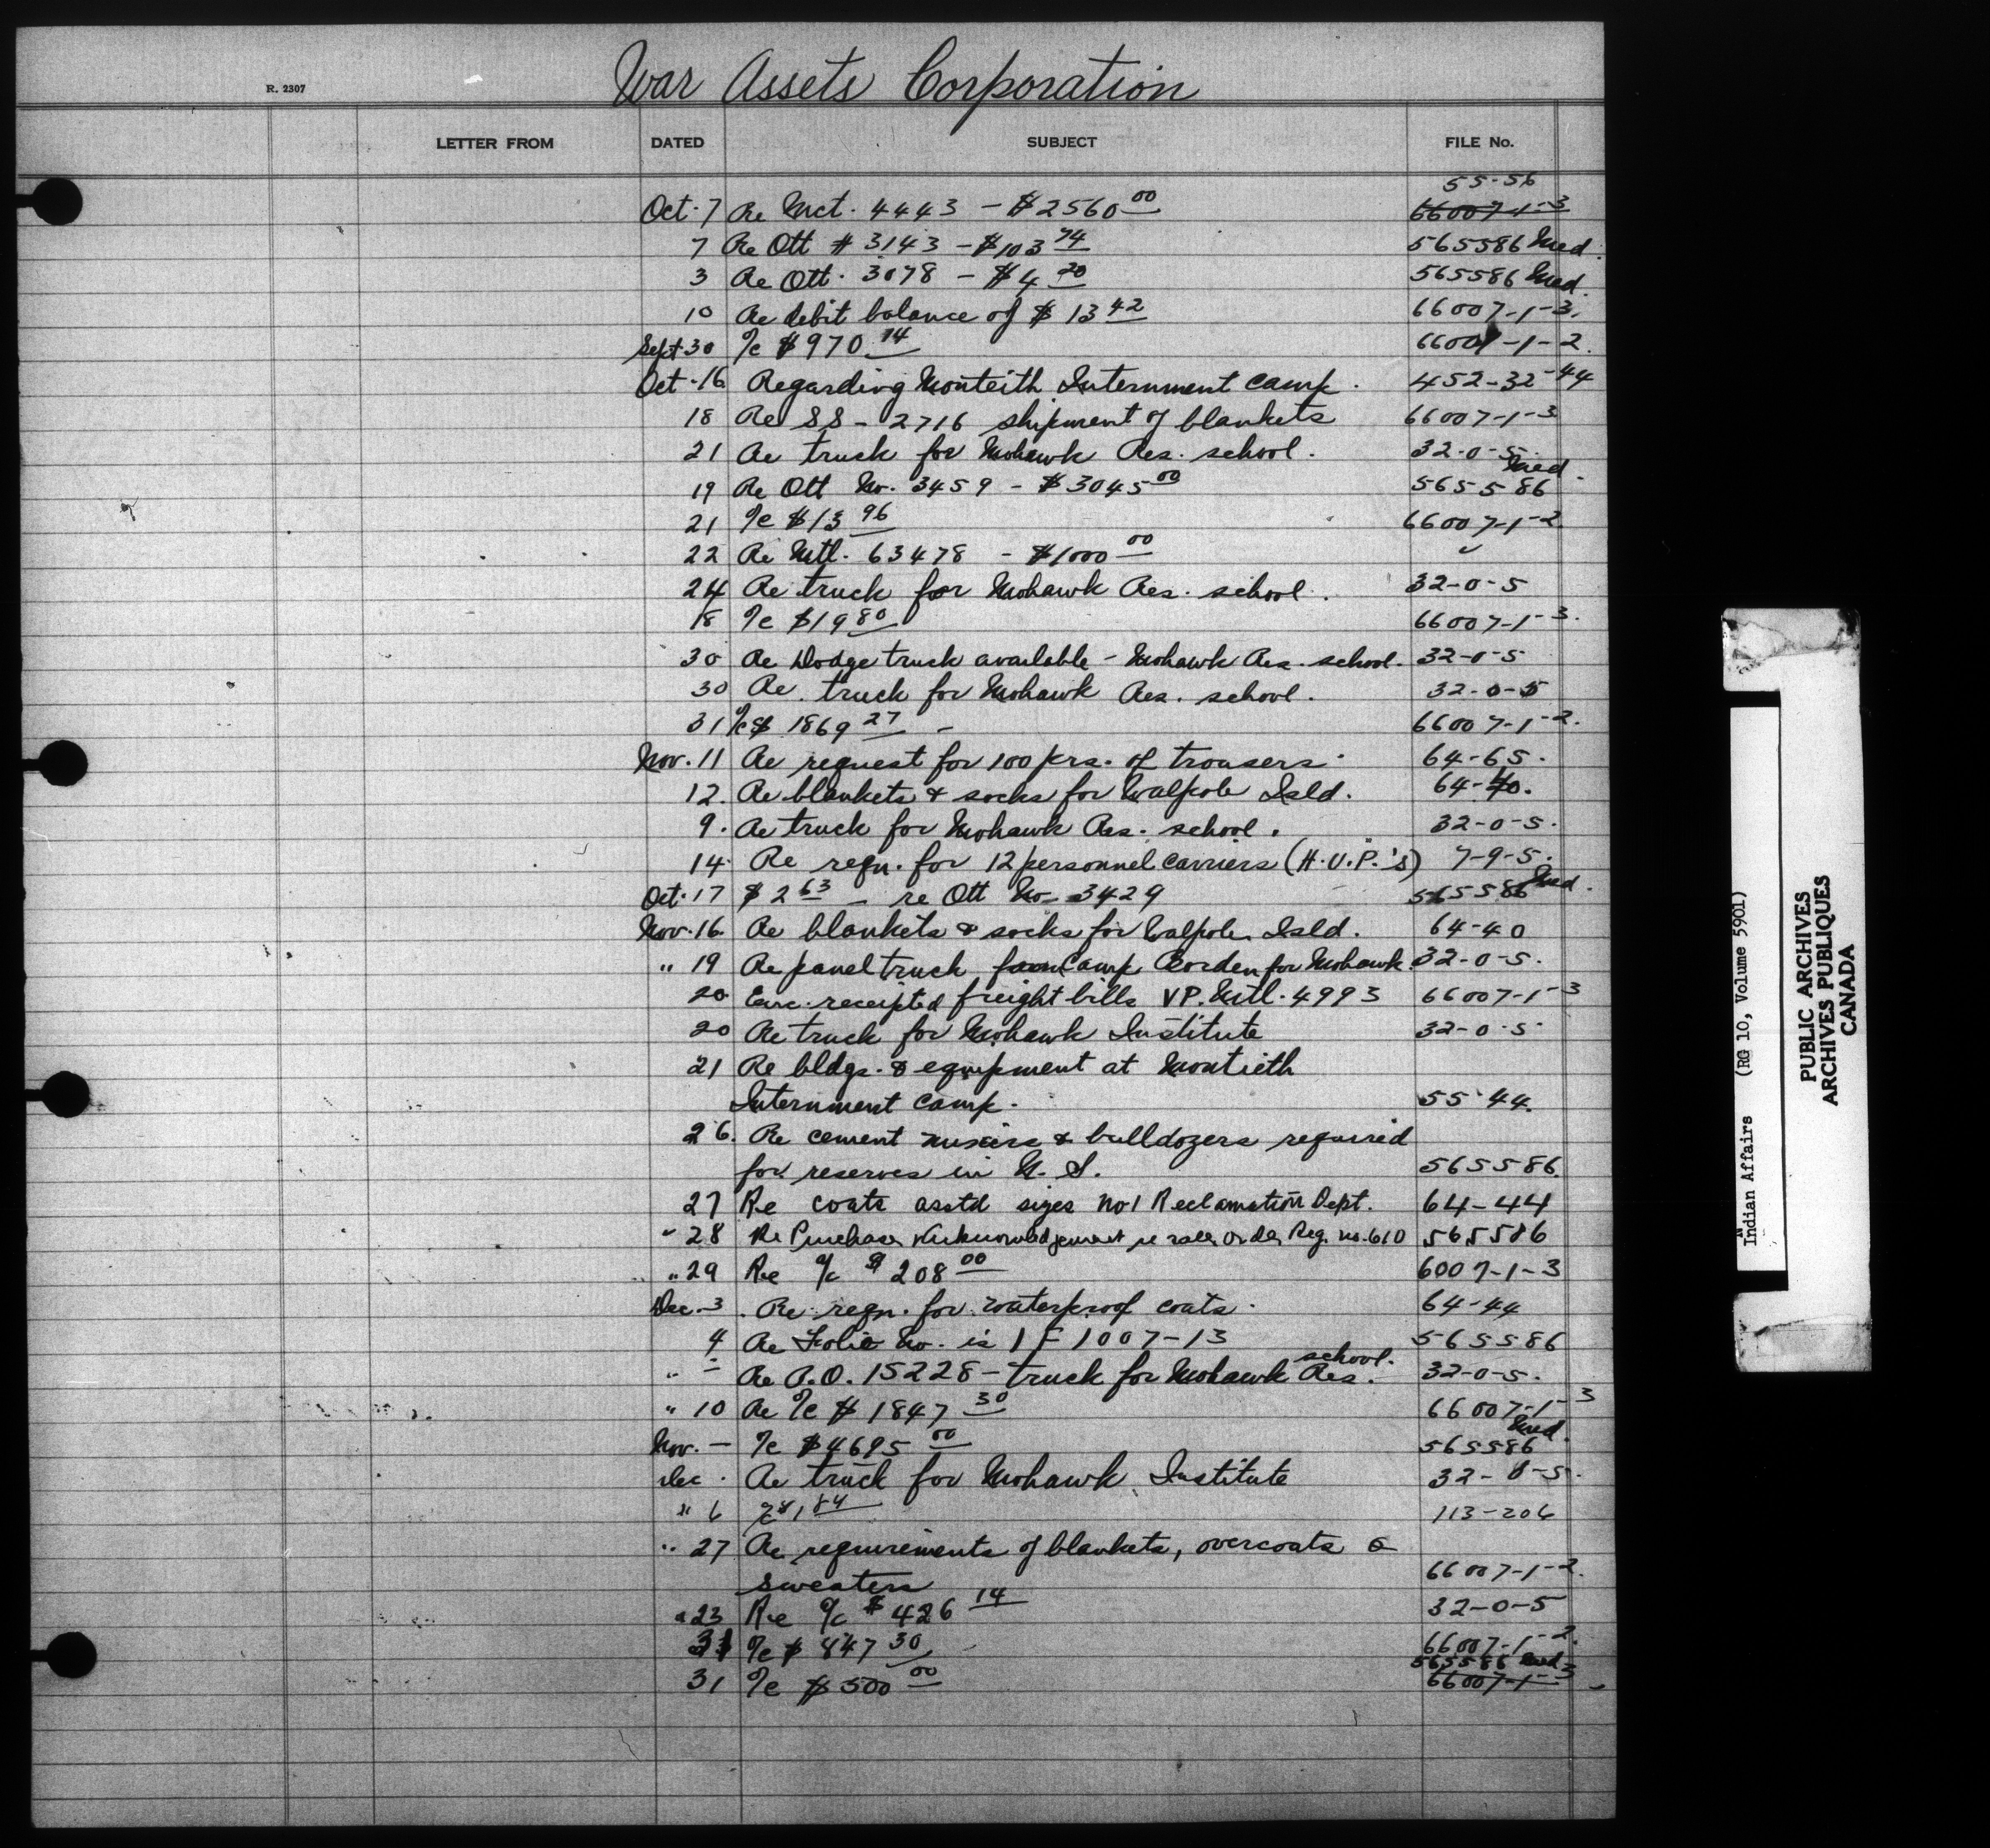 War Assets Corporation
R. 2307
LETTER FROM DATED SUBJECT FILE No.
55-56
Oct. 7 Re Mct. 4443 - $2560 00 66007-1-3
7 Re Ott # 3143 - $103 74 565586 Med.
3 Re Ott. 3078 - $4 20 565586 Med.
10 Re debit balance of $ 13 42 66007-1-3.
Sept 30 %c $970 14 66007-1-2.
Oct. 16 Regarding Monteith Internment Camp. 452-32-44
18 Re SS - 2716 shipment of blankets 66007-1-3
21 Re truck for Mohawk Res. school. 32-0-5.
19 Re Ott No. 3459 - $3045 00 565586 Med.
21 %c $13 96 66007-1-2
22 Re Mtl. 63478 - $1000 00 "
24 Re truck for Mohawk Res. school. 32-0-5
18 %c $19 80 66007-1-3.
30 Re Dodge truck available - Mohawk Res. school. 32-0-5
30 Re truck for Mohawk Res. school. 32-0-5
31 %c $ 1869 27 - 66007-1-2.
Nov. 11 Re request for 100 prs. of trousers. 64-65.
12. Re blankets & socks for Walpole Isld. 64-40.
9. Re truck for Mohawk Res. school. 32-0-5.
14. Re reqn. for 12 personnel carriers (H.U.P.'s) 7-9-5.
Oct. 17 $2 63 - re Ott No - 3429 565586 Med.
Nov. 16. Re blankets & socks for Walpole Isld. 64-40
" 19 Re panel truck from Camp Borden for Mohawk. 32-0-5.
20 Enc. receipted freight bills VP. Mtl. 4993 66007-1-3
20 Re truck for Mohawk Institute 32-0-5
21 Re bldgs. & equipment at Montieth
Internment Camp. 55-44.
26. Re cement mixers & bulldozers required
for reserves in N. S. 565586.
27 Re coats asstd sizes No 1 Reclamation Dept. 64-44
" 28 Re Purchase Acknowledgement re sales order Reg. no. 610 565586
" 29 Re %c $ 208 00 6007-1-3
Dec. 3. Re reqn. for waterproof coats. 64-44
4 Re Folio No. is 1 F 1007-13 565586
" - Re P.O. 15228 - truck for Mohawk Res. school. 32-0-5.
" 10 Re %c $ 1847 30 66007-1-3
Nov. - %c $4695 00 565586 Med.
Dec. Re truck for Mohawk Institute 32-0-5.
" 6 %c $1 84 113-206
" 27 Re requirements of blankets, overcoats &
sweaters 66007-1-2.
" 23 Re %c $ 426 14 32-0-5
31 %c $ 847 30 66007-1-2.
565586 Med
31 %c $500 00 66007-1-3
Indian Affairs (RG 10, Volume 5901)
PUBLIC ARCHIVES
ARCHIVES PUBLIQUES
CANADA